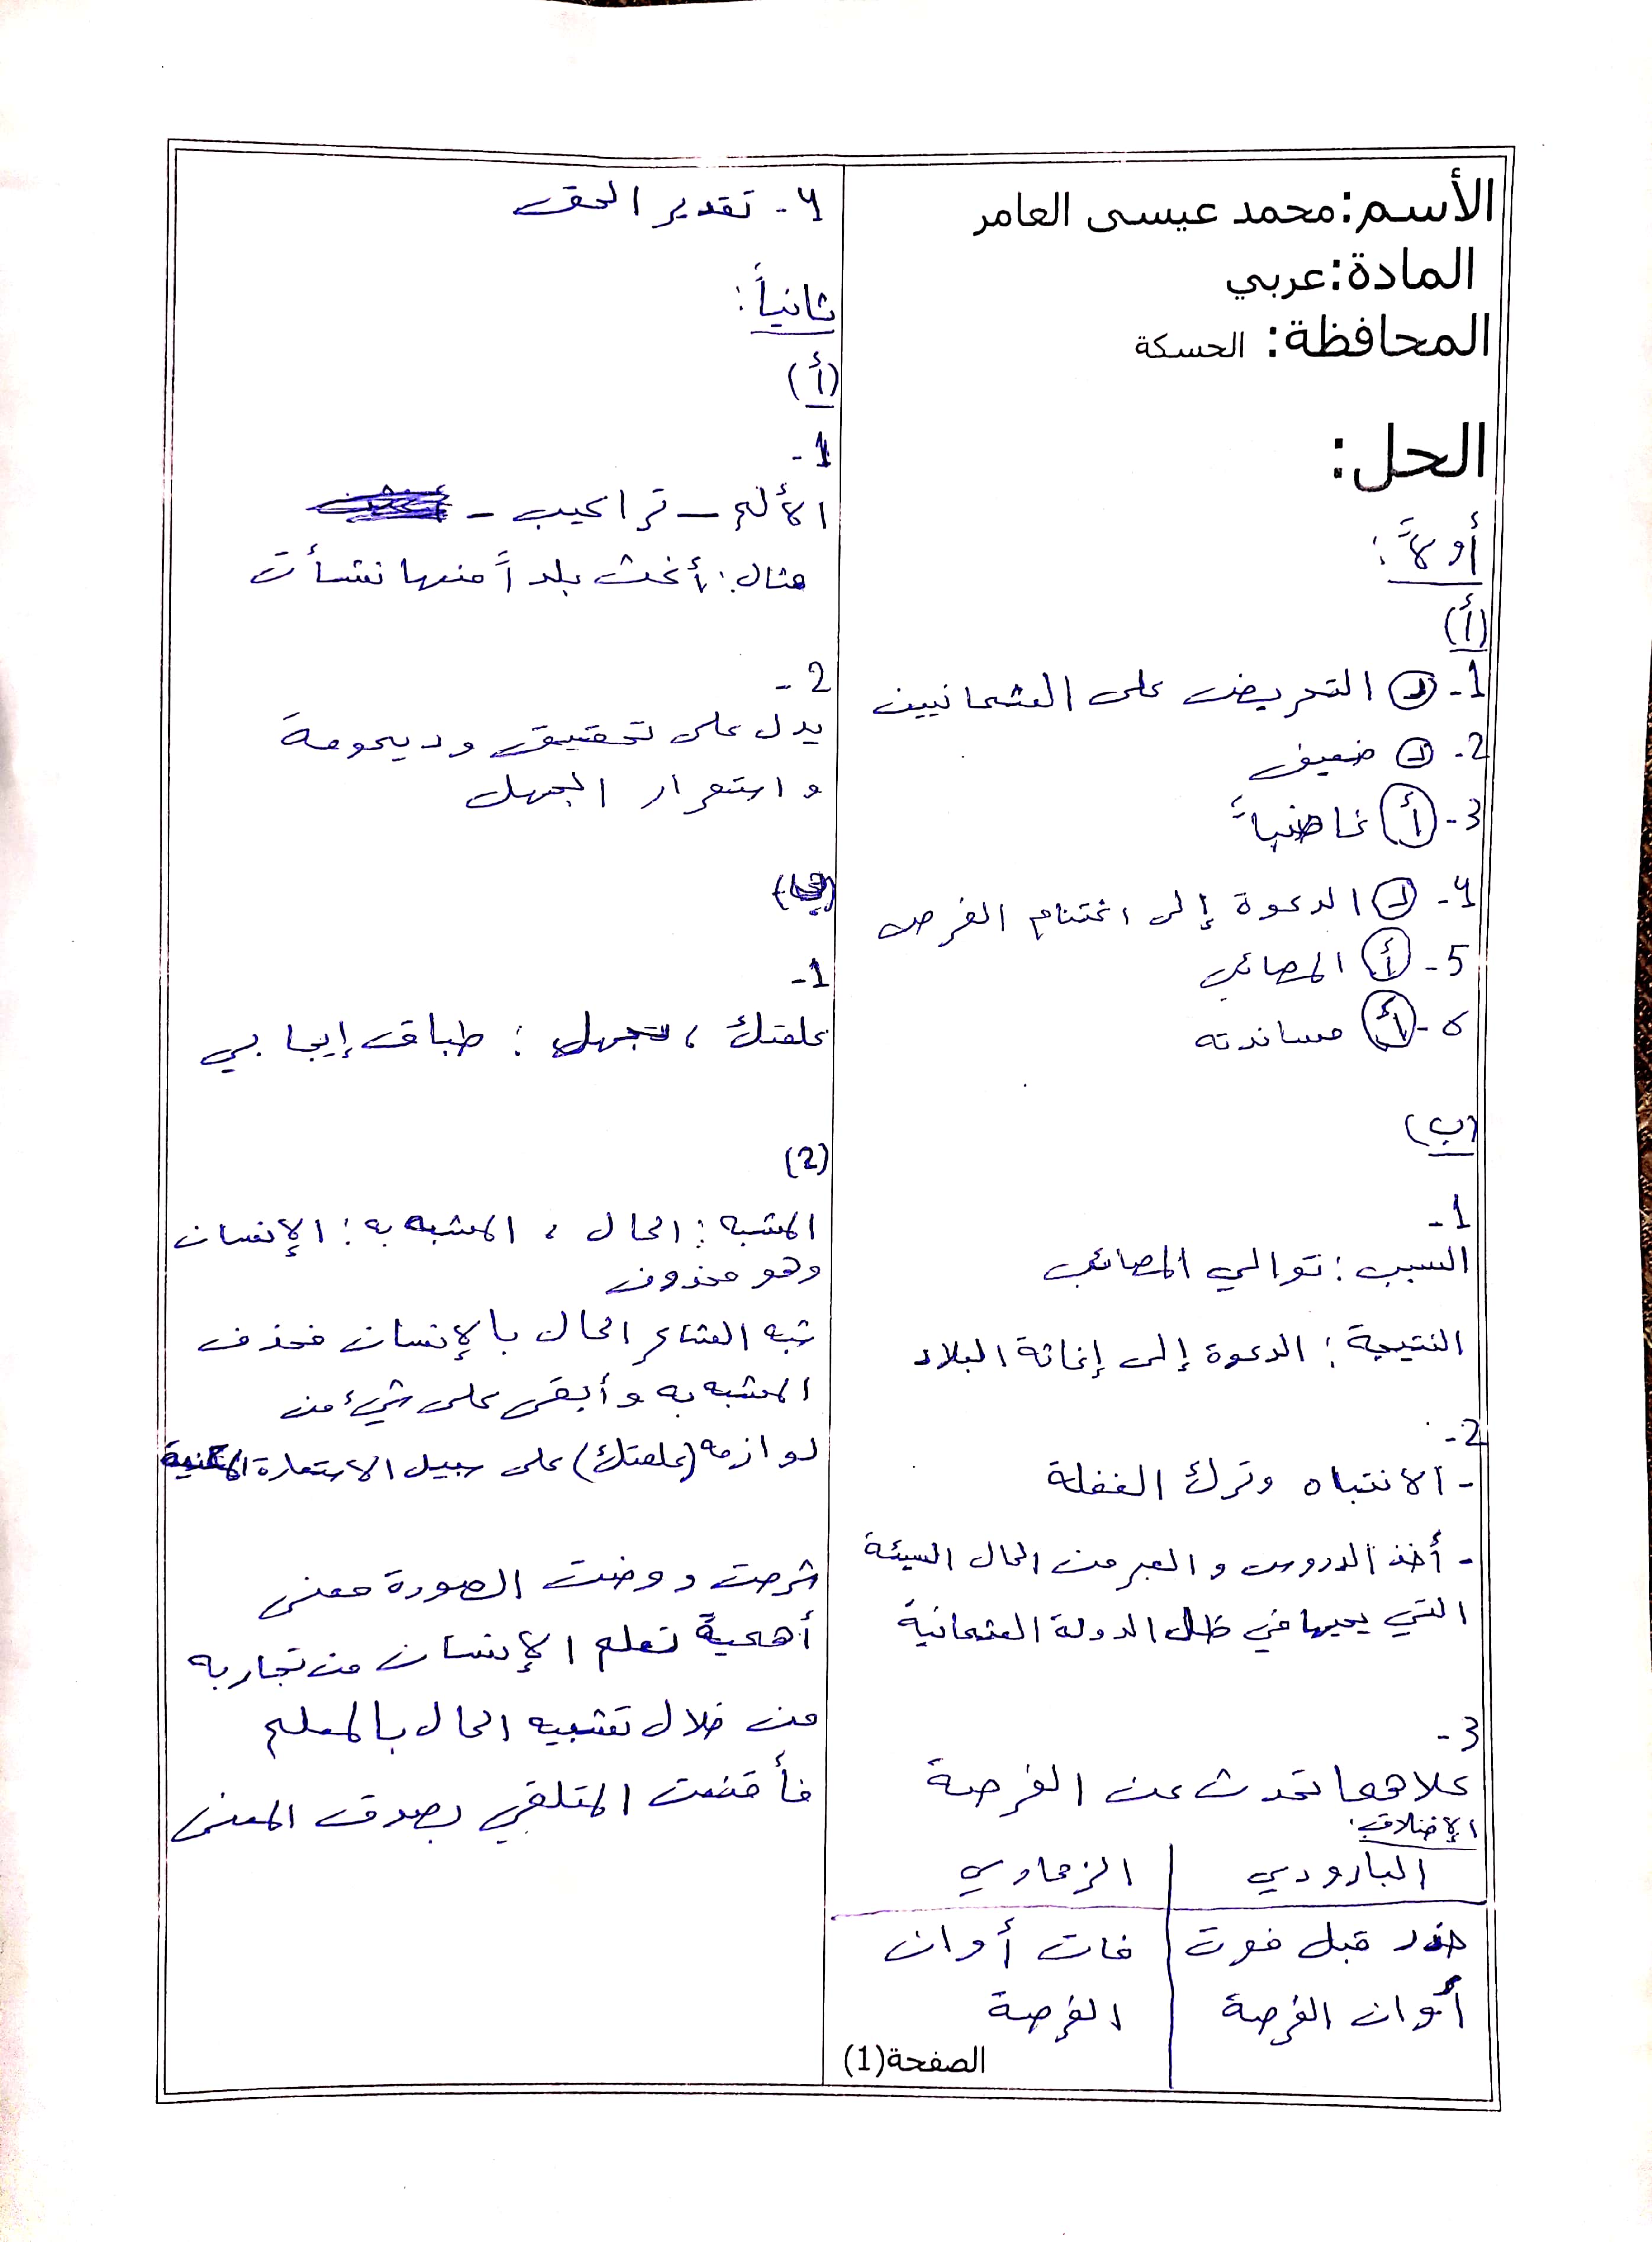 الأسم:محمد عيسى العامر
المادة:عربي
المحافظة: الحسكة
الحل:
أولاً:
(أ)
1- د التحريض على العثمانيين
2- د ضعيف
3- أ غاضباً
4- د الدعوة إلى اغتنام الفرص
5- أ المصائب
6- أ مساندته
(ب)
1-
السبب: توالي المصائب
النتيجة: الدعوة إلى إغاثة البلاد
2-
- الانتباه وترك الغفلة
- أخذ الدروس والعبر من الحال السيئة
التي يحيها في ظل الدولة العثمانية
3-
كلاهما تحدث عن الفرصة
الإختلاف:
البارودي | الزهاوي
حذر قبل فوت | فات أوان
أوان الفرصة | الفرصة
الصفحة(1)
4- تقدير الحق
ثانياً:
(أ)
1-
الألم - تراكيب -
مثال: أغث بلداً منها نشأت
2-
يدل على تحقيق وديمومة
واستمرار الجهل
(ب)
1-
علمتك ، تجهل : طباق إيجابي
(2)
المشبه: الحال ، المشبه به: الإنسان
وهو محذوف
شبه الشاعر الحال بالإنسان فحذف
المشبه به وأبقى على شيء من
لوازمه (علمتك) على سبيل الاستعارة المكنية
شرحت ووضت الصورة معنى
أهمية تعلم الإنسان من تجاربه
من خلال تشبيه الحال بالمعلم
فأقنعت المتلقي بصدق المعنى